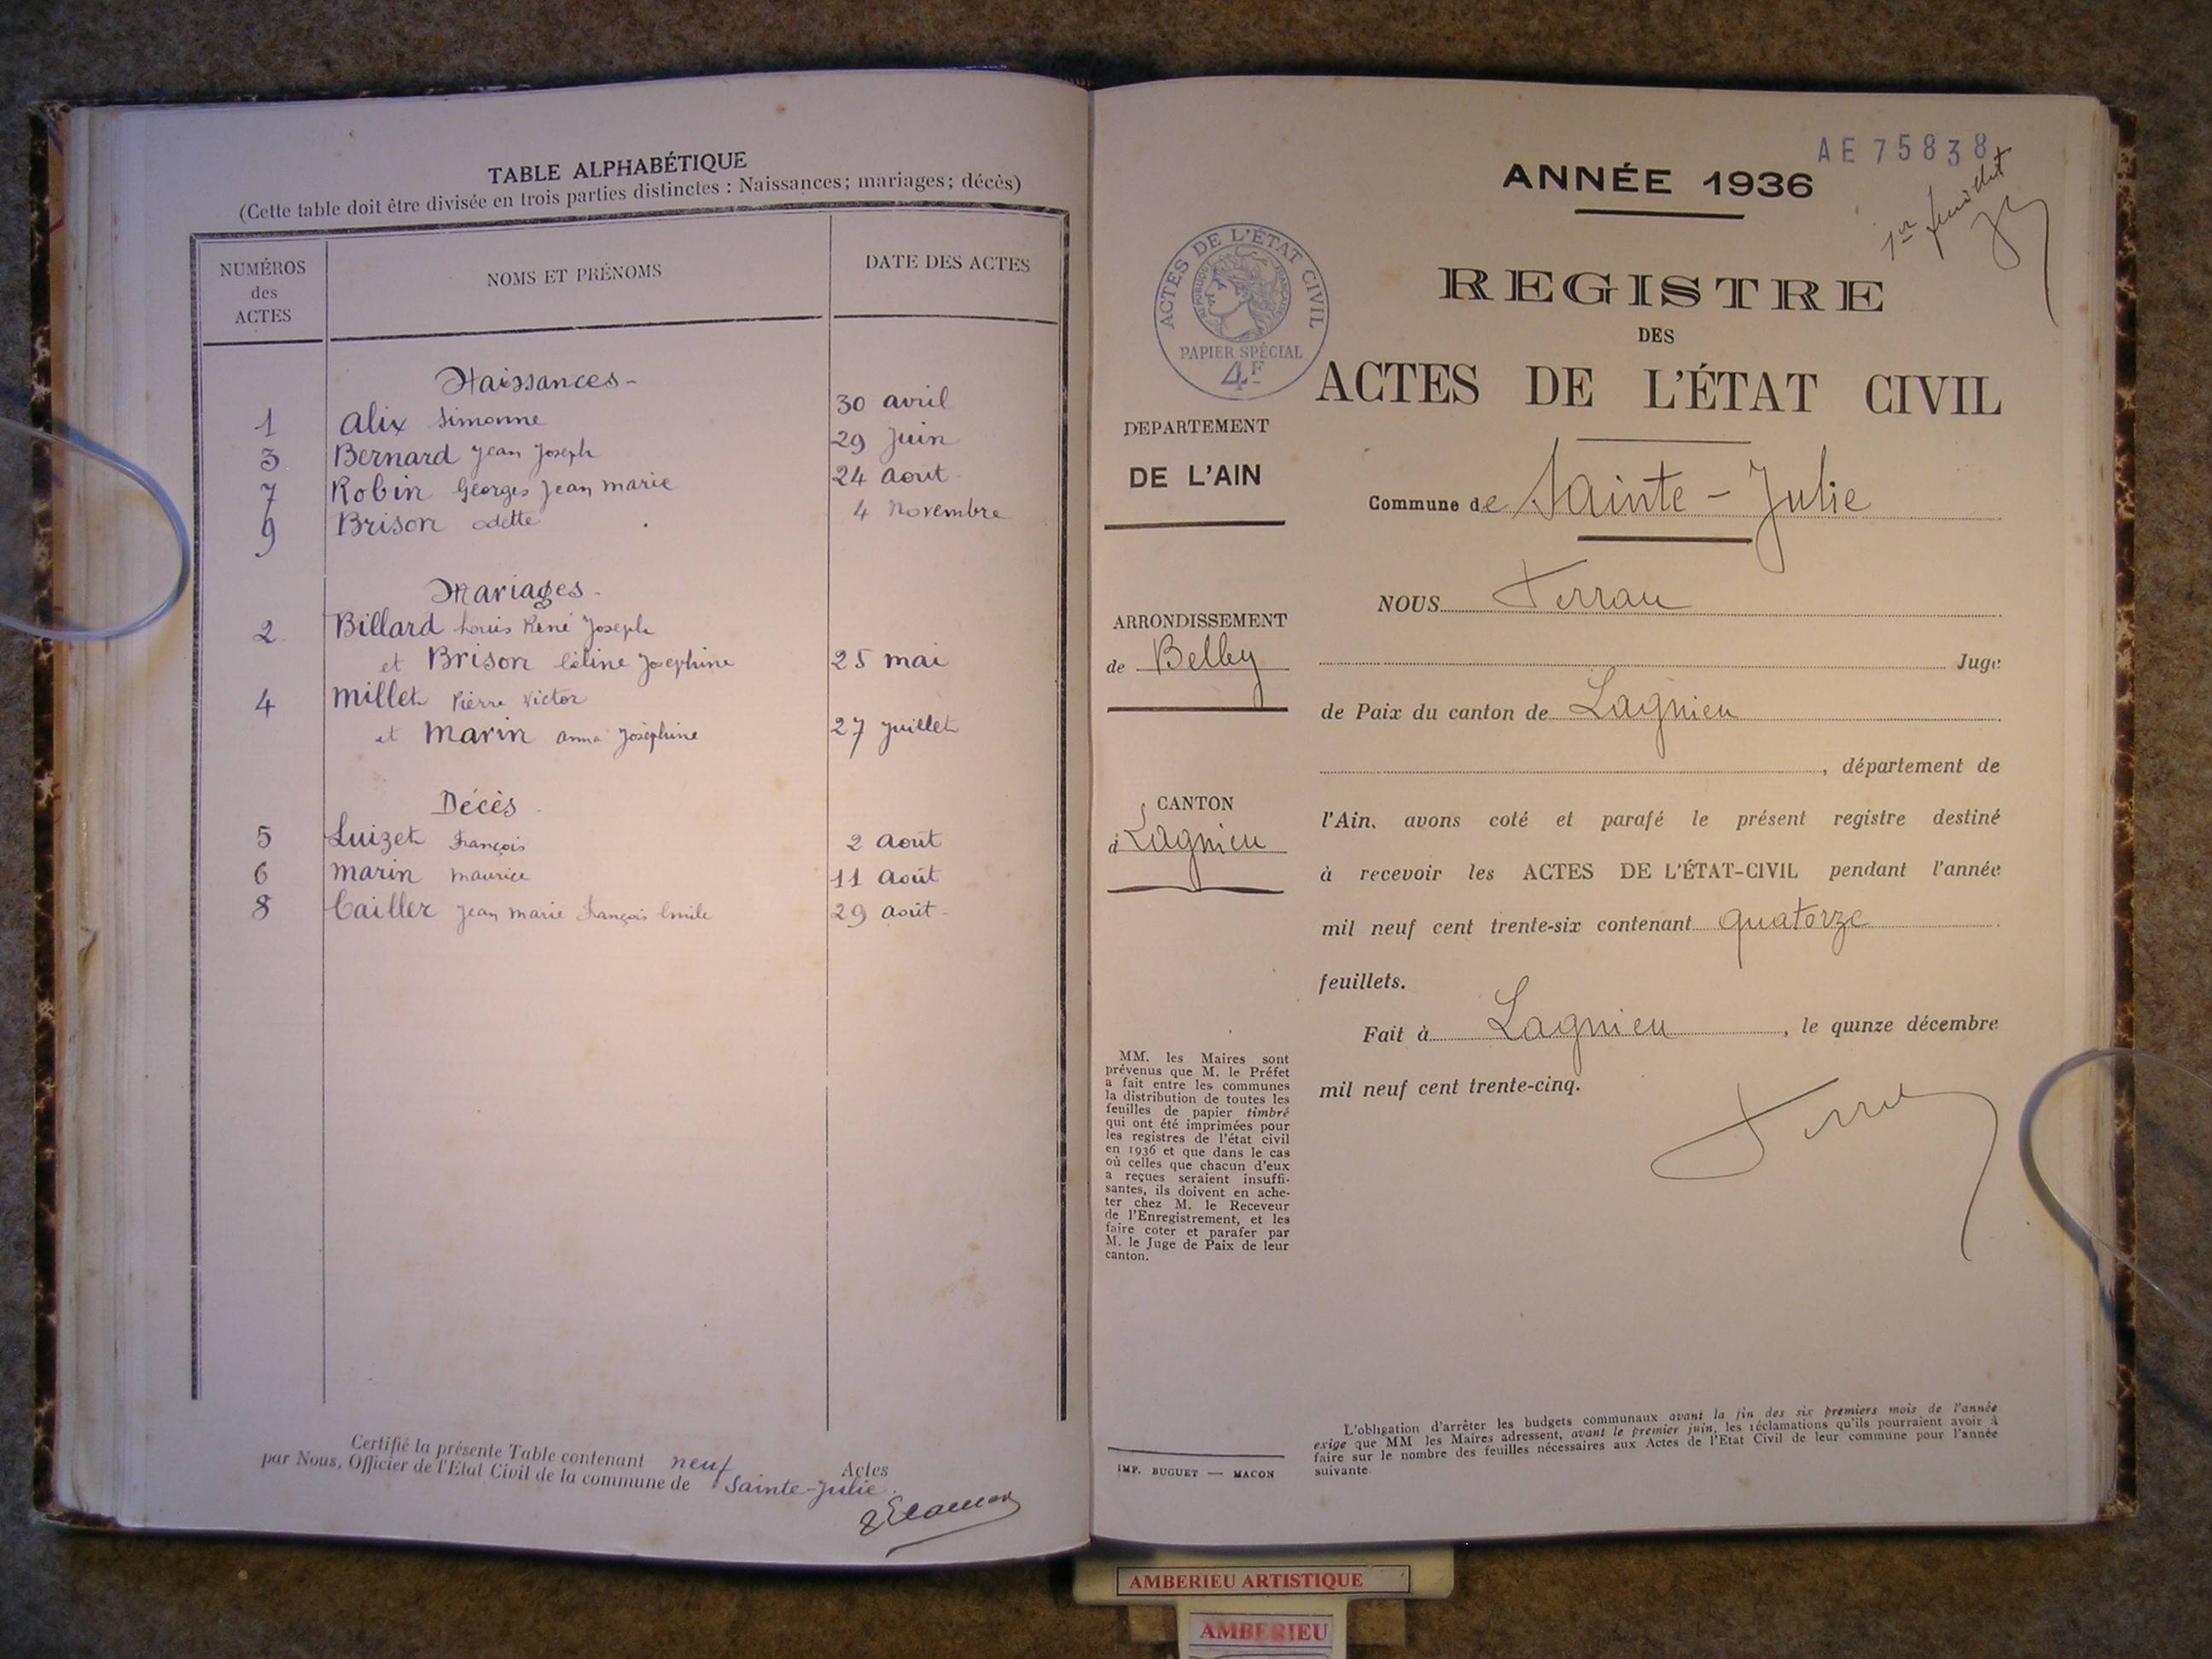 TABLE ALPHABÉTIQUE
(Cette table doit être divisée en trois parties distinctes : Naissances ; mariages ; décès)
NUMÉROS des ACTES NOMS ET PRÉNOMS DATE DES ACTES
Naissances -
1 Alix Simonne 30 avril
3 Bernard Jean Joseph 29 Juin
7 Robin Georges Jean Marie 24 Aout
9 Brison Odette 4 Novembre
Mariages -
2 Billard Louis René Joseph
et Brison Céline Josephine 25 mai
4 Millet Pierre Victor
et Marin Anna Joséphine 27 Juillet
Décès
5 Luizet François 2 Août
6 Marin Maurice 11 Août
8 Cailler Jean Marie François Emile 29 août
Certifié la présente Table contenant neuf Actes
par Nous, Officier de l'Etat Civil de la commune de Sainte-Julie.
AE 75838
1er feuillet
ANNÉE 1936
REGISTRE
DES
ACTES DE L'ÉTAT CIVIL
ACTES DE L'ÉTAT CIVIL
RÉPUBLIQUE FRANÇAISE
PAPIER SPÉCIAL
4F
DEPARTEMENT
DE L'AIN
ARRONDISSEMENT
de Belley
CANTON
d Lagnieu
MM. les Maires sont
prévenus que M. le Préfet
a fait entre les communes
la distribution de toutes les
feuilles de papier timbré
qui ont été imprimées pour
les registres de l'état civil
en 1936 et que dans le cas
où celles que chacun d'eux
a reçues seraient insuffi-
santes, ils doivent en ache-
ter chez M. le Receveur
de l'Enregistrement, et les
faire coter et parafer par
M. le Juge de Paix de leur
canton.
IMP. BUGUET — MACON
Commune de Sainte-Julie
NOUS
Juge
de Paix du canton de Lagnieu
, département de
l'Ain, avons coté et parafé le présent registre destiné
à recevoir les ACTES DE L'ÉTAT-CIVIL pendant l'année
mil neuf cent trente-six contenant quatorze
feuillets.
Fait à Lagnieu, le quinze décembre
mil neuf cent trente-cinq.
L'obligation d'arrêter les budgets communaux avant la fin des six premiers mois de l'année
exige que MM les Maires adressent, avant le premier juin, les réclamations qu'ils pourraient avoir à
faire sur le nombre des feuilles nécessaires aux Actes de l'Etat Civil de leur commune pour l'année
suivante
AMBERIEU ARTISTIQUE
AMBERIEU